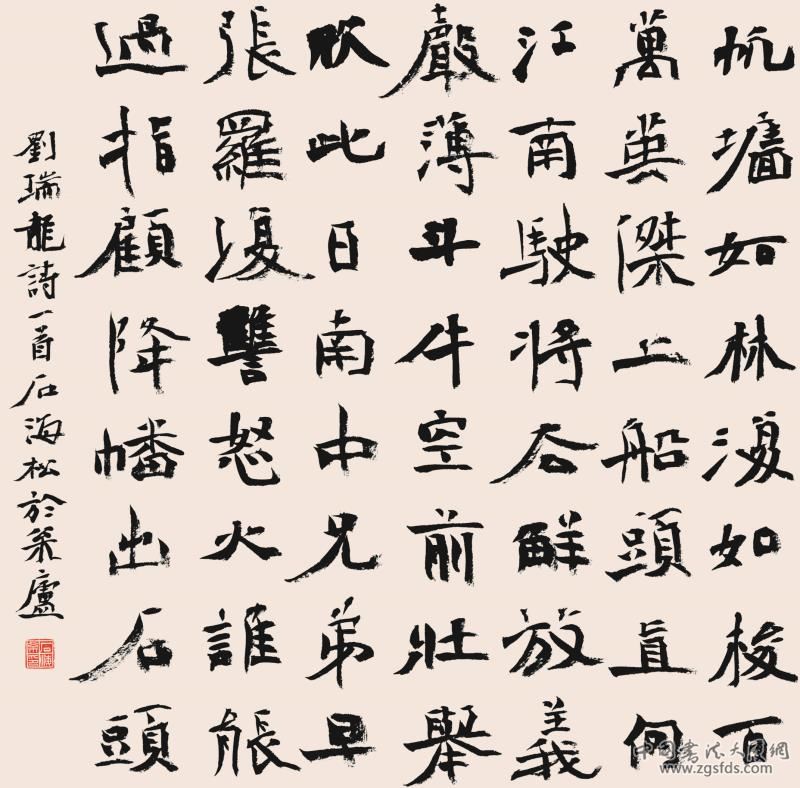 帆墻如林浪如梭百
萬英傑上船頭直向
江南駛將去解放義
聲薄斗牛空前壯舉
欣此日南中兄弟早
張羅復讐怒火誰能
過指顧降幡出石頭
劉瑞龍詩一首石海松於策廬
中国书法大图网
www.zgsfds.com